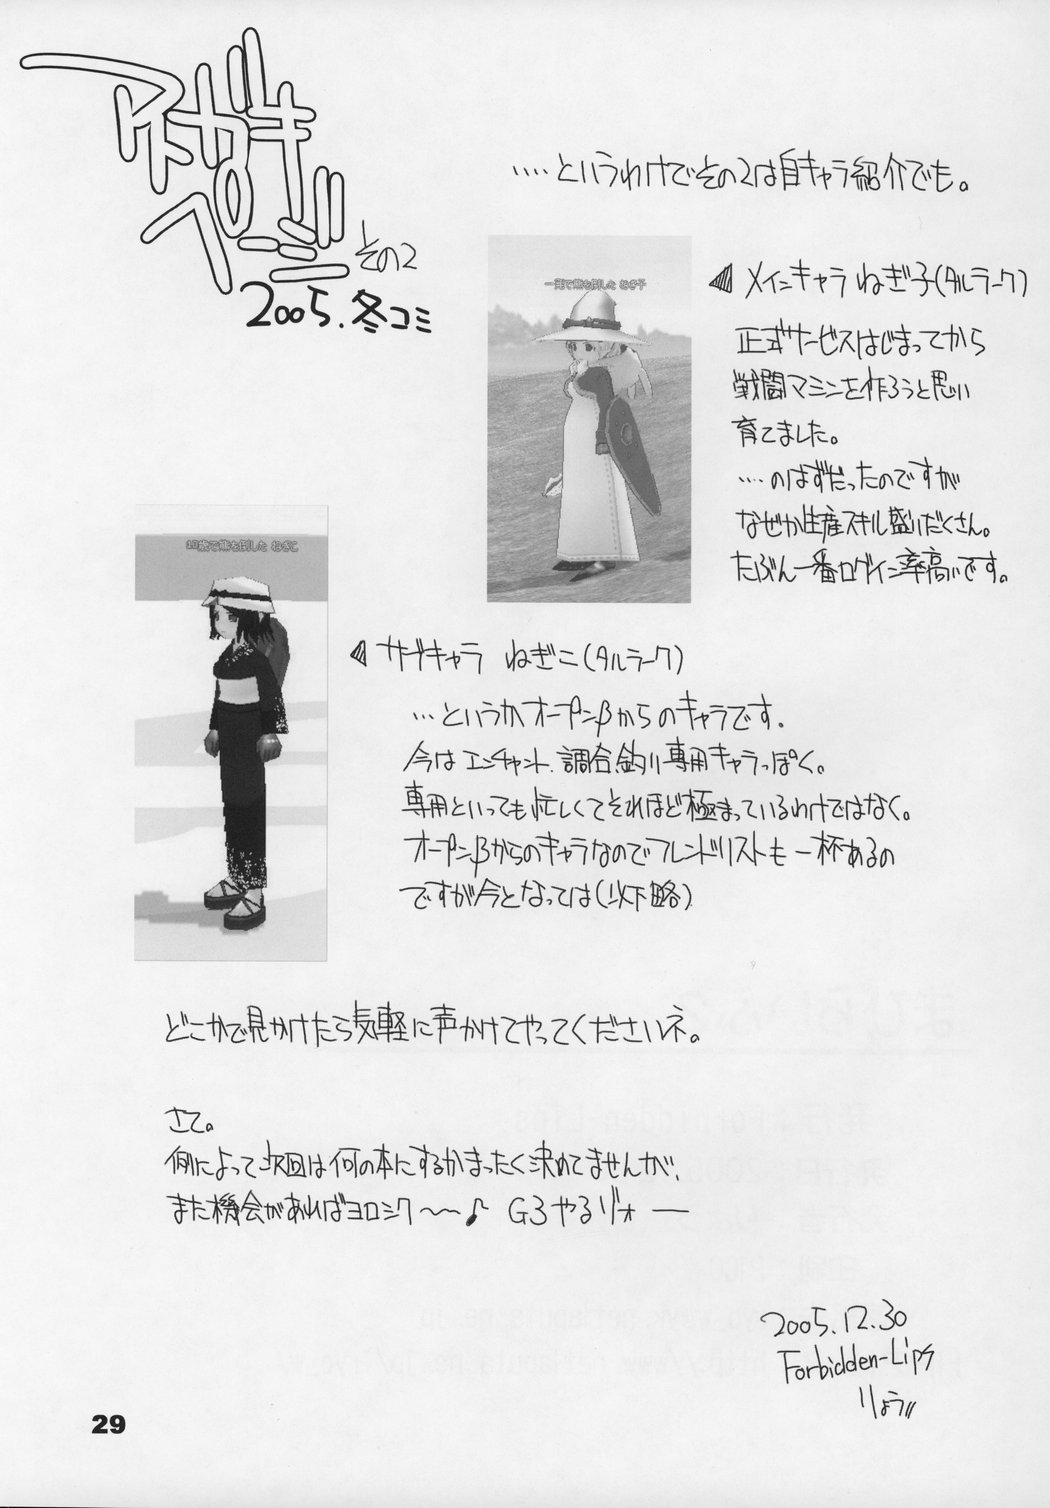 アトガキ
ページ
その2
2005.冬コミ
....というわけでその2は自キャラ紹介でも。
一発で熊を倒した ねぎ子
メインキャラ ねぎ子(タルラーク)
正式サービスはじまってから
戦闘マシンを作ろうと思い
育てました。
....のはずだったのですが
なぜか生産スキル盛りだくさん。
たぶん一番ログイン率高いです。
10歳で熊を倒した ねぎこ
サブキャラ ねぎこ(タルラーク)
...というかオープンβからのキャラです.
今は エンチャント、調合、釣り専用キャラっぽく。
専用といっても忙しくてそれほど極まっているわけではなく。
オープンβからのキャラなのでフレンドリストも一杯あるの
ですが今となっては(以下略)
どこかで見かけたら気軽に声かけてやってくださいネ。
さて。
例によって次回は何の本にするかまったく決めてませんが、
また機会があればヨロシク〜〜♪ G3やるゾォー
2005.12.30
Forbidden-Lips
りょう
29